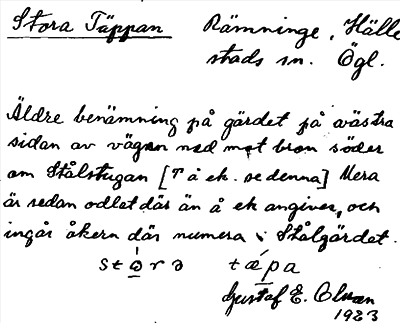 Stora Täppan Rämninge, Hälle
stads sn. Ögl.
Äldre benämning på gärdet på västra
sidan av vägen ned mot bron söder
om Stålstugan [T å ek. se denna] Mera
är sedan odlat där än å ek angives, och
ingår åkern där numera i Stålgärdet.
stǝrǝ tæpa
Gustaf E.
1923